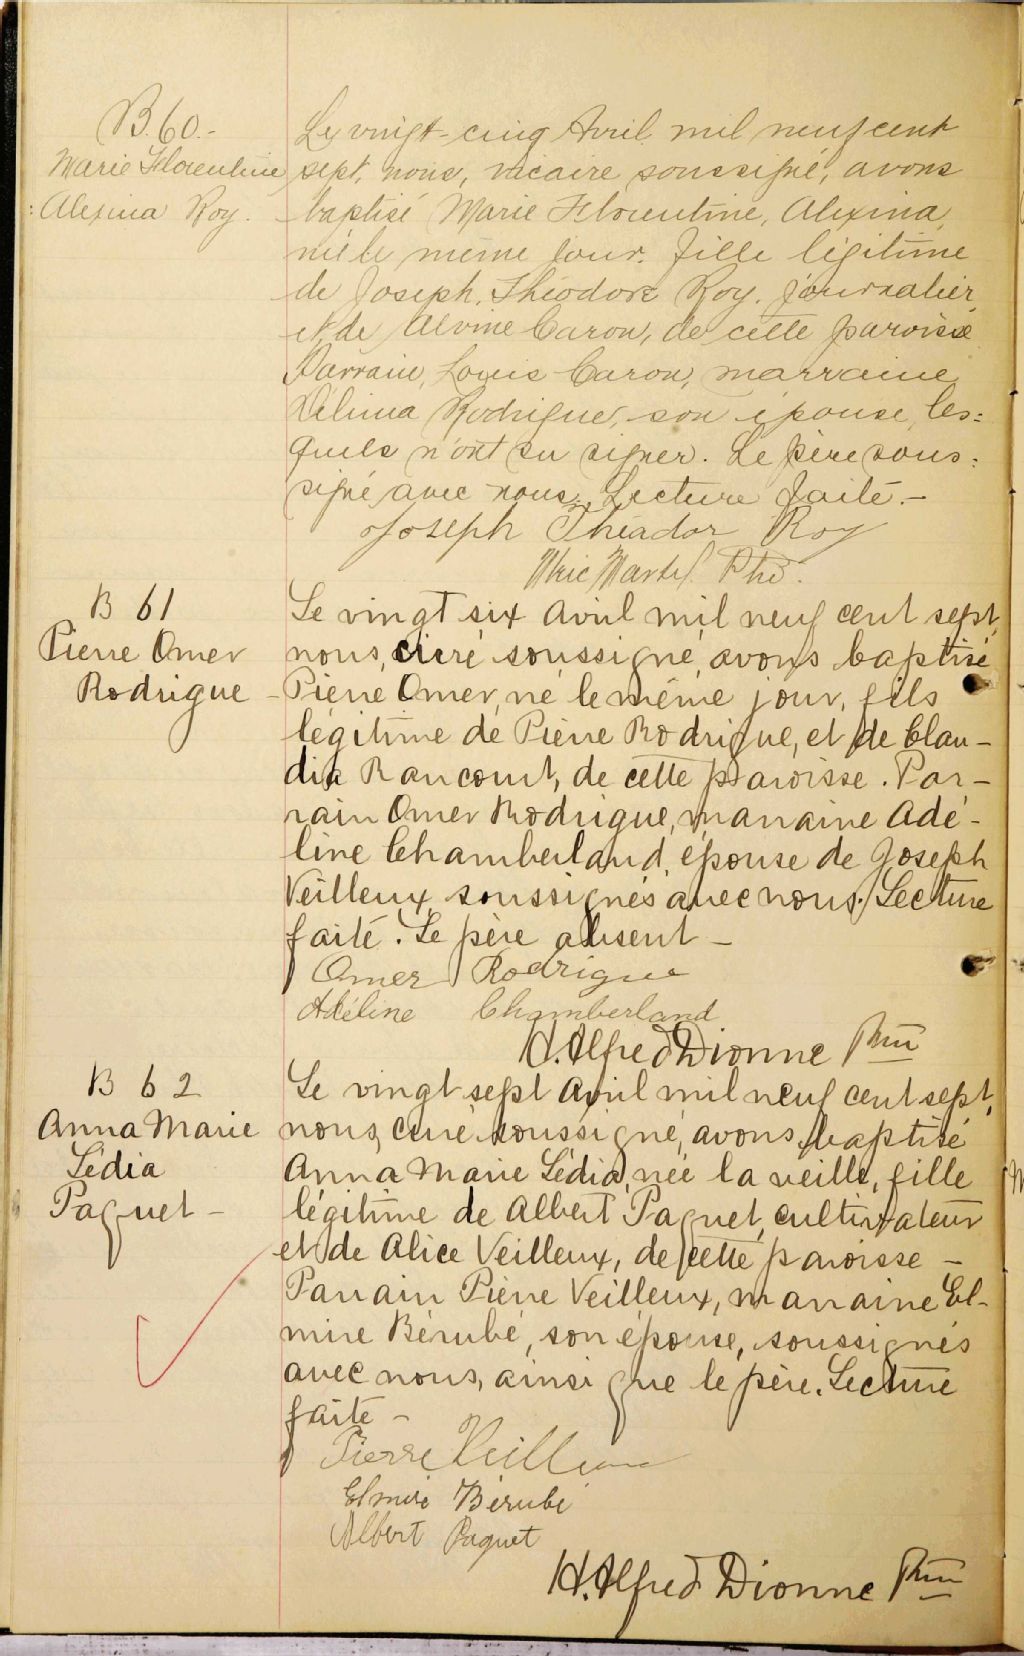 B. 60.-
Marie Florentine
Alexina Roy.
Le vingt-cinq Avril mil neuf cent
sept, nous, vicaire soussigné, avons
baptisé Marie Florentine, Alexina,
née le même jour, fille légitime
de Joseph, Théodore Roy, journalier
et de Alvine Caron, de cette paroisse
Parrain, Louis Caron, marraine
Délima Rodrigue, son épouse, les=
quels n'ont su signer. Le père sous=
signé avec nous. Lecture faite.-
Joseph Théador Roy
Martel Ptre.
B 61
Pierre Omer
Rodrigue -
Le vingt six avril mil neuf cent sept,
nous, curé soussigné, avons baptisé
Pierre Omer, né le même jour, fils
légitime de Pierre Rodrigue, et de Clau-
dia Rancourt, de cette paroisse. Par-
rain Omer Rodrigue, marraine Adé-
line Chamberland, épouse de Joseph
Veilleux, soussignés avec nous. Lecture
faite. Le père absent -
Omer Rodrigue
Adéline Chamberland
H. Alfred Dionne Ptre
B 62
Anna Marie
Lédia
Paquet -
Le vingt sept avril mil neuf cent sept,
nous, curé soussigné, avons baptisé
Anna Marie Lédia, née la veille, fille
légitime de Albert Paquet, cultivateur
et de Alice Veilleux, de cette paroisse -
Parrain Pierre Veilleux, marraine El-
mire Bérubé, son épouse, soussignés
avec nous, ainsi que le père. Lecture
faite -
Pierre Veilleux
Elmire Bérubé
Albert Paquet
H. Alfred Dionne Ptre